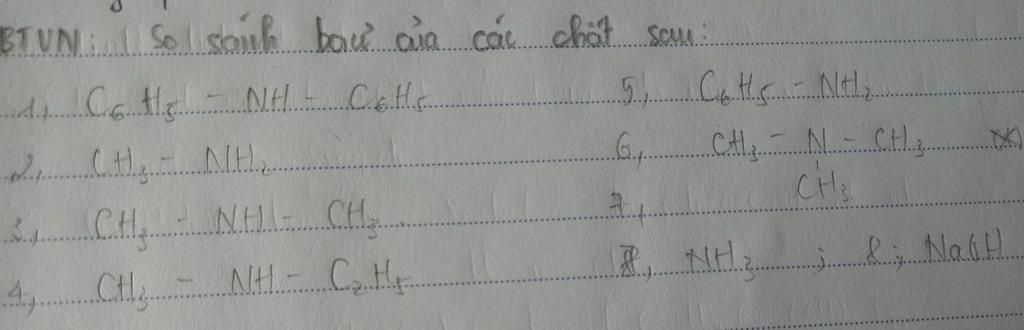 BTVN: So sánh bazơ của các chất sau:
1, C6H5 - NH - C6H5
2, CH3 - NH2
3, CH3 - NH - CH3
4, CH3 - NH - C2H5
5, C6H5 - NH2
6, CH3 - N - CH3 (*)
CH3
7,
NH3 ; 8; NaOH